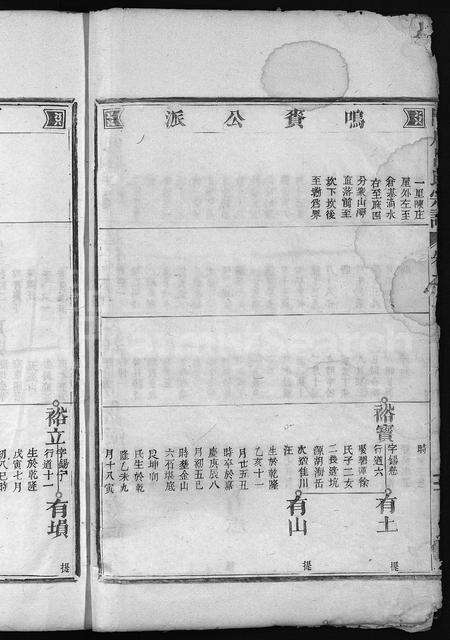 鳴賚公派
一里陳庄
屋外左至
倉基滴水
右至庙園
分案山灣
直落前至
坎下坎後
至塘為界
時
裕寶
字錫慈
行道六
氏子二女
二長適坑
次適佳川
汪
生於乾隆
乙亥十一
月廿五丑
時卒於嘉
慶庚辰八
月初五巳
時葬金山
六石堪底
艮坤向
氏生於乾
隆乙未九
月十八寅
有土
有山
提
裕立
字錫予
行道十一
生於乾隆
戊寅七月
初八巳時
有塤
提